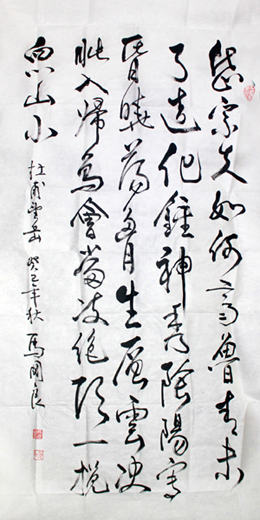 岱宗夫如何齊魯青未
了造化鍾神秀陰陽割
昏曉蕩胸生層雲決
眥入歸鳥會當凌絕頂一覽
眾山小
杜甫望岳 癸巳年秋 馬國良